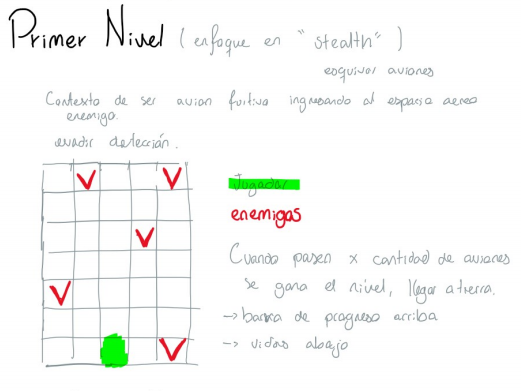 Primer Nivel (enfoque en "stealth")
esquivar aviones
Contexto de ser avion furtivo ingresando al espacio aereo
enemigo.
evadir detección.
V V
Jugador
enemigas
V
Cuando pasen x cantidad de aviones
V
se gana el nivel, llegar a tierra.
→ barra de progreso arriba
→ vidas abajo
V